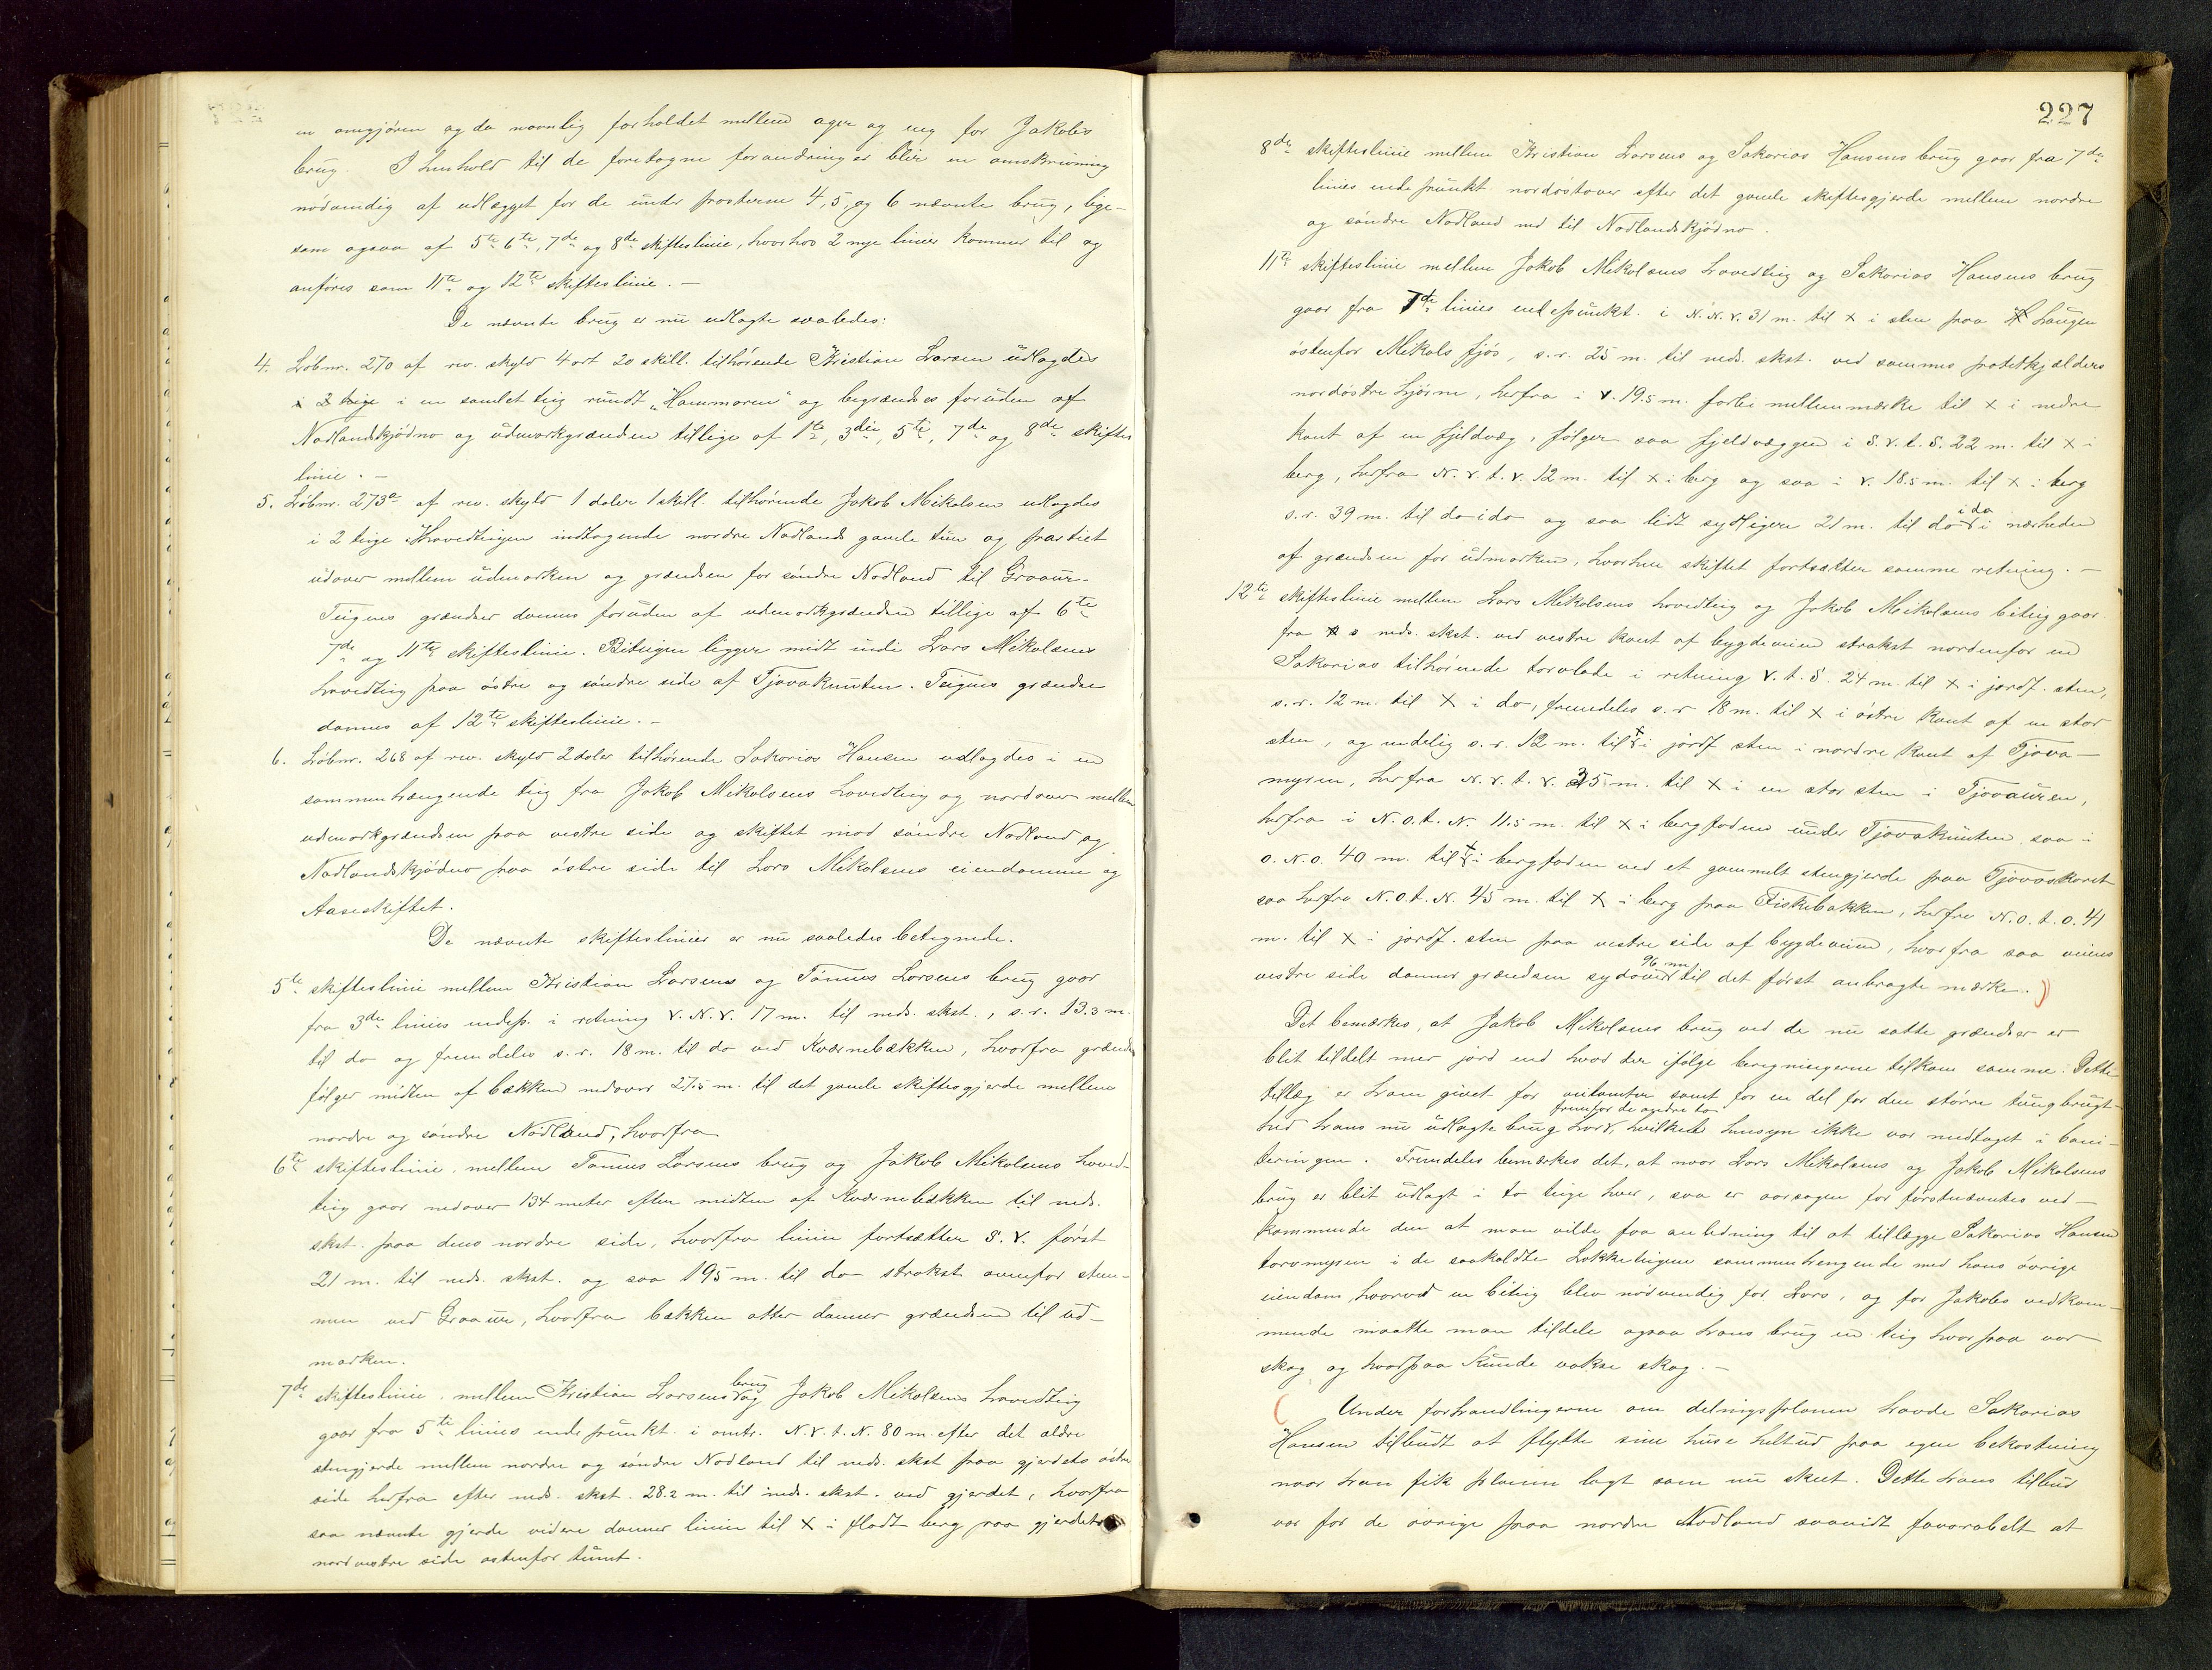 en omgjøren og da navnlig forholdet mellem ager og eng for Jakobs
brug I henhold til de foretagne forandringer blir en omskrivning
nödvendig af udlægget for de under posterne 4, 5, og 6 nævnte brug, lige-
som ogsaa af 5te 6te, 7de og 8de skifteslinie, hvorhos 2 nye linier kommer til og
anføres som 11te og 12te skifteslinie. —
De nævnte brug er nu udlagte saaledes:
4. Löbnr. 270 af rev. skyld 4 ort 20 skill. tilhørende Kristian Larsen udlagdes
i 2 teige i en samlet teig rundt „Hammaren" og begrændses foruden af
Nodlandskjödno og udmarkgrændsen tillige af 1te, 3die, 5te, 7de og 8de skiftes
linie. —
5. Löbnr. 273a af rev. skyld 1 daler 1 skill. tilhørende Jakob Mikalsen udlagdes
i 2 teige Hovedteigen indtagende nordre Nodlands gamle tun og partiet
udover mellem udmarken og grændsen for söndre Nodland til Graaur.
Teigens grændser dannes foruden af udmarkgrændsen tillige af 6te
7de og 11te skifteslinie. Biteigen ligger midt inde i Lars Mikalsens
hovedteig paa östre og söndre side af Tjovaknuten. Teigens grændse
dannes af 12te skifteslinie. —
6. Löbnr. 268 af rev. skyld 2 daler tilhørende Sakarias Hansen udlagdes i en
sammenhængende teig fra Jakob Mikalsens hovedteig og nordover mellem
udmarkgrændsen paa vestre side og skiftet mod söndre Nodland og
Nodlandskjödno paa östre side til Lars Mikalsens eiendomme og
Aaseskiftet.
De nævnte skifteslinier er nu saaledes betegnede.
5te skifteslinie mellem Kristian Larsens og Tönnes Larsens brug gaar
fra 3die linies endep. i retning V.N.V. 17 m. til neds. skst., s. r. 13.3 m.
til do og fremdeles s. r. 18 m. til do ved Kværnebækken, hvorfra grændsen
følger midten af bækken nedover 27.5 m. til det gamle skiftesgjerde mellem
nordre og söndre Nodland, hvorfra
6te skifteslinie mellem Tönnes Larsens brug og Jakob Mikalsens hoved-
teig gaar nedover 134 meter efter midten af Kværnebækken til neds.
skst. paa dens nordre side, hvorfra linien fortsætter S. V. först
21 m. til neds. skst. og saa 195 m. til do strakst ovenfor stem-
men ved Graaur, hvorfra bækken atter danner grændsen til ud-
marken.
7de skifteslinie mellem Kristian Larsens brug og Jakob Mikalsens hovedteig
gaar fra 5te linies endepunkt i omtr. N.V.t.N. 80 m. efter det ældre
stengjerde mellem nordre og söndre Nodland til neds. skst paa gjerdets östre
side herfra efter neds. skst. 28.2 m. til neds. skst. ved gjerdet, hvorfra
saa nævnte gjerde videre danner linien til x i fladt berg paa gjerdets
nordvestre side østenfor tunet.
227
8de skifteslinie mellem Kristian Larsens og Sakarias Hansens brug gaar fra 7de
linies endepunkt nordöstover efter det gamle skiftesgjerde mellem nordre
og söndre Nodland ned til Nodlandskjödno.
11te skifteslinie mellem Jakob Mikalsens hovedteig og Sakarias Hansens brug
gaar fra 7de linies endepunkt i N.N.V. 31 m. til x i sten paa Haugen
östenfor Mikals fjös, s. r. 25 m. til neds. skst. ved sammes potetkjælders
nordöstre hjörne, herfra i V. 19.5 m. forbi mellemmærke til x i nedre
kant af en fjeldvæg, følger saa fjeldvæggen i S.V.t.S. 22 m. til x i
berg, herfra N.V.t.V. 12 m. til x i berg og saa i V. 18.5 m. til x i berg
s. r. 39 m. til do i do og saa lidt sydligere 21 m. til do i do i nærheden
af grændsen for udmarken, hvorhen skiftet fortsætter samme retning. —
12te skifteslinie mellem Lars Mikalsens hovedteig og Jakob Mikalsens biteig gaar
fra neds. skst. ved vestre kant af bygdeveien strakst nordenfor en
Sakarias tilhørende torvlade i retning V.t.S. 24 m. til x i jordf. sten,
s. r. 12 m. til x i do, fremdeles s. r 18 m. til x i östre kant af en stor
sten, og endelig s. r. 12 m. til x i jordf sten i nordre kant af Tjova-
myren, herfra N.V.t.V. 35 m. til x i en stor sten i Tjovauren,
herfra i N.O.t.N. 11.5 m. til x i bergfoden under Tjovaknuten saa i
O.N.O. 40 m. til x i bergfoden ved et gammelt stengjerde paa Tjovaskaret
saa herfra N.O.t.N. 45 m. til x i berg paa Fiskebakken, herfra N.O.t.O. 41
m. til x i jordf. sten paa vestre side af bygdeveien, hvorfra saa veiens
vestre side danner grændsen sydover 96 m til det först anbragte mærke.)
Det bemærkes, at Jakob Mikalsens brug ved de nu satte grændser er
blit tildelt mer jord end hvad der ifølge beregningerne tilkom samme. Dette
tillæg er ham givet for samt for en del for den större tungbrugt-
hed hans nu udlagte brug har fremfor de andre to, hvilket hensyn ikke var medtaget i boni-
teringen. Fremdeles bemærkes det, at naar Lars Mikalsens og Jakob Mikalsens
brug er blit udlagt i to teige hver, saa er aarsagen for førstnævntes ved-
kommende den at man vilde faa anledning til at tillægge Sakarias Hansen
torvmyren i de saakaldte Lokketeigene sammenhengende med hans övrige
eiendom, hvorved en biteig blev nödvendig for Lars, og for Jakobs vedkom-
mende maatte man tildele ogsaa hans brug en teig hvorpaa var
skog og hvorpaa kunde vokse skog. —
( Under forhandlingerne om delingsplanen havde Sakarias
Hansen tilbudt at flytte sine huse heltud paa egen bekostning
naar han fik planen lagt som nu skeet. Dette hans tilbud
var for de övrige paa nordre Nodland saavidt favorabelt at